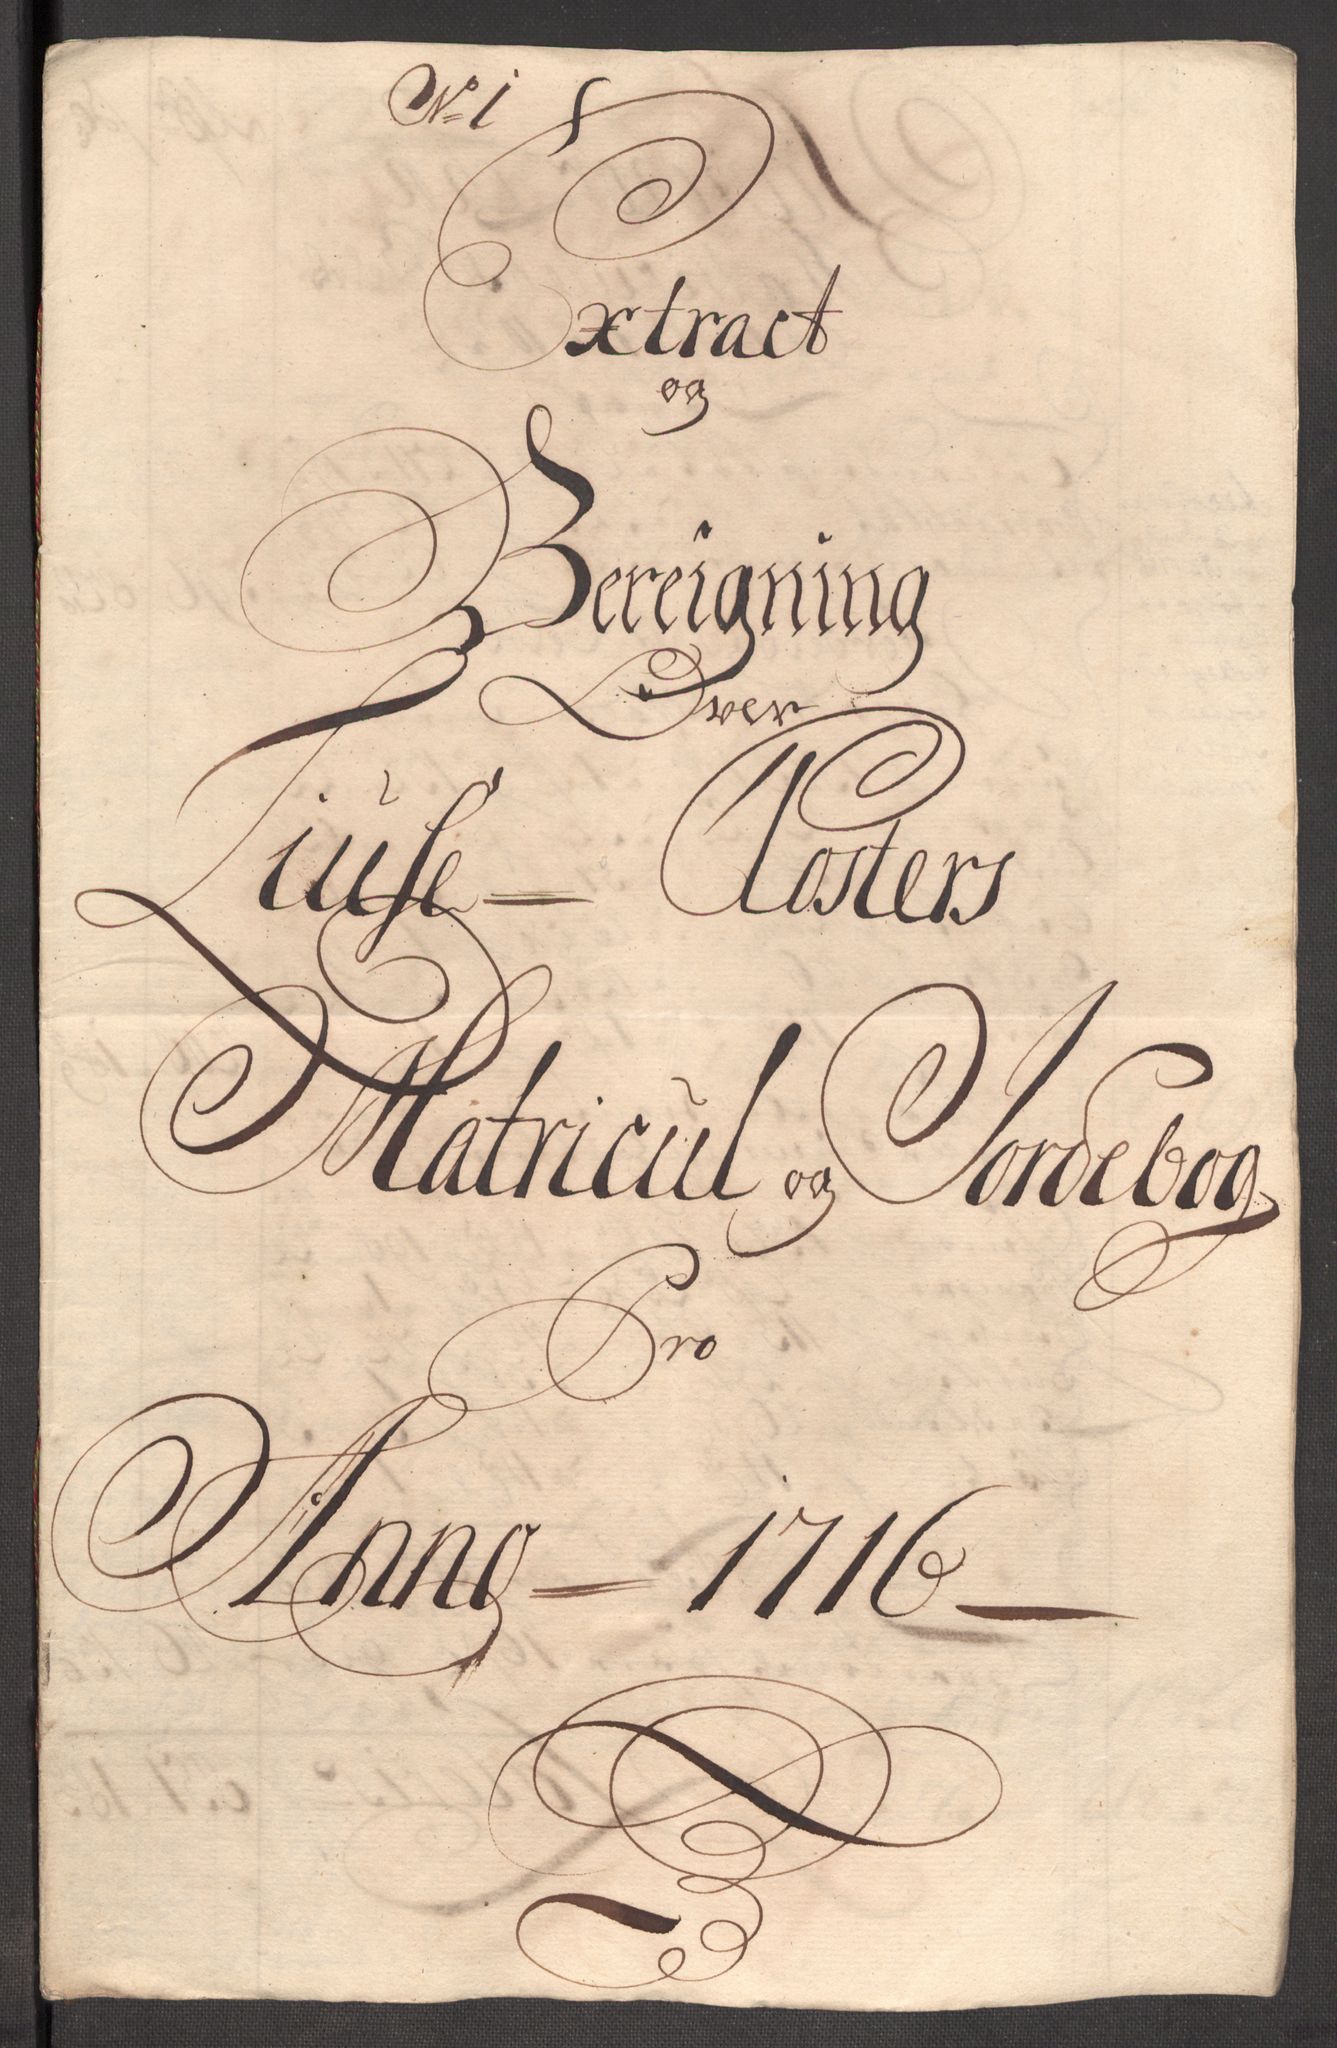 No 1
Extract
og
Bereigning
Over
Liuse Closters
Matricul og Jordebog
Pro
Anno 1716